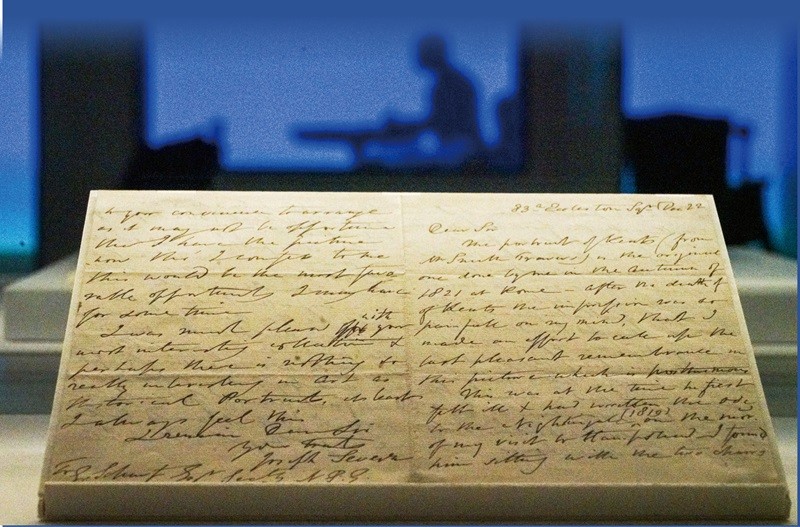 to your convenience to arrange
as it may not be opportune
tho' I have the picture
now this I confess to me
this would be the most favo
rable opportunity I may have
for some time
I was much pleased with your
most interesting collection &
perhaps there is nothing so
really interesting in Art as
Historical Portraits, at least
I always feel this
I remain Dear Sir
Yrs truly
Joseph Severn
To G Scharf Esqr Secty N.P.G.
83a Eccleston Sqr Dec 22
Dear Sir
The portrait of Keats (from
Mr Smith Travers) is the original
one done by me in the Autumn of
1821 at Rome – after the death
of Keats the impression was so
painfull on my mind, that I
made an effort to call up the
last pleasant remembrance in
this picture which is posthumous
This was at the time he first
fell ill & had written the Ode
to the Nightingale (1819) on the mor
of my visit to Hampstead I found
him sitting with the two chairs